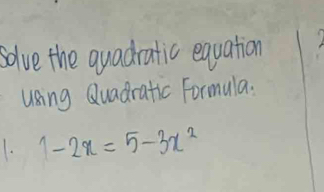 Solve the quadratic equation
using Quadratic Formula.
1. 1-2x = 5-3x²
2